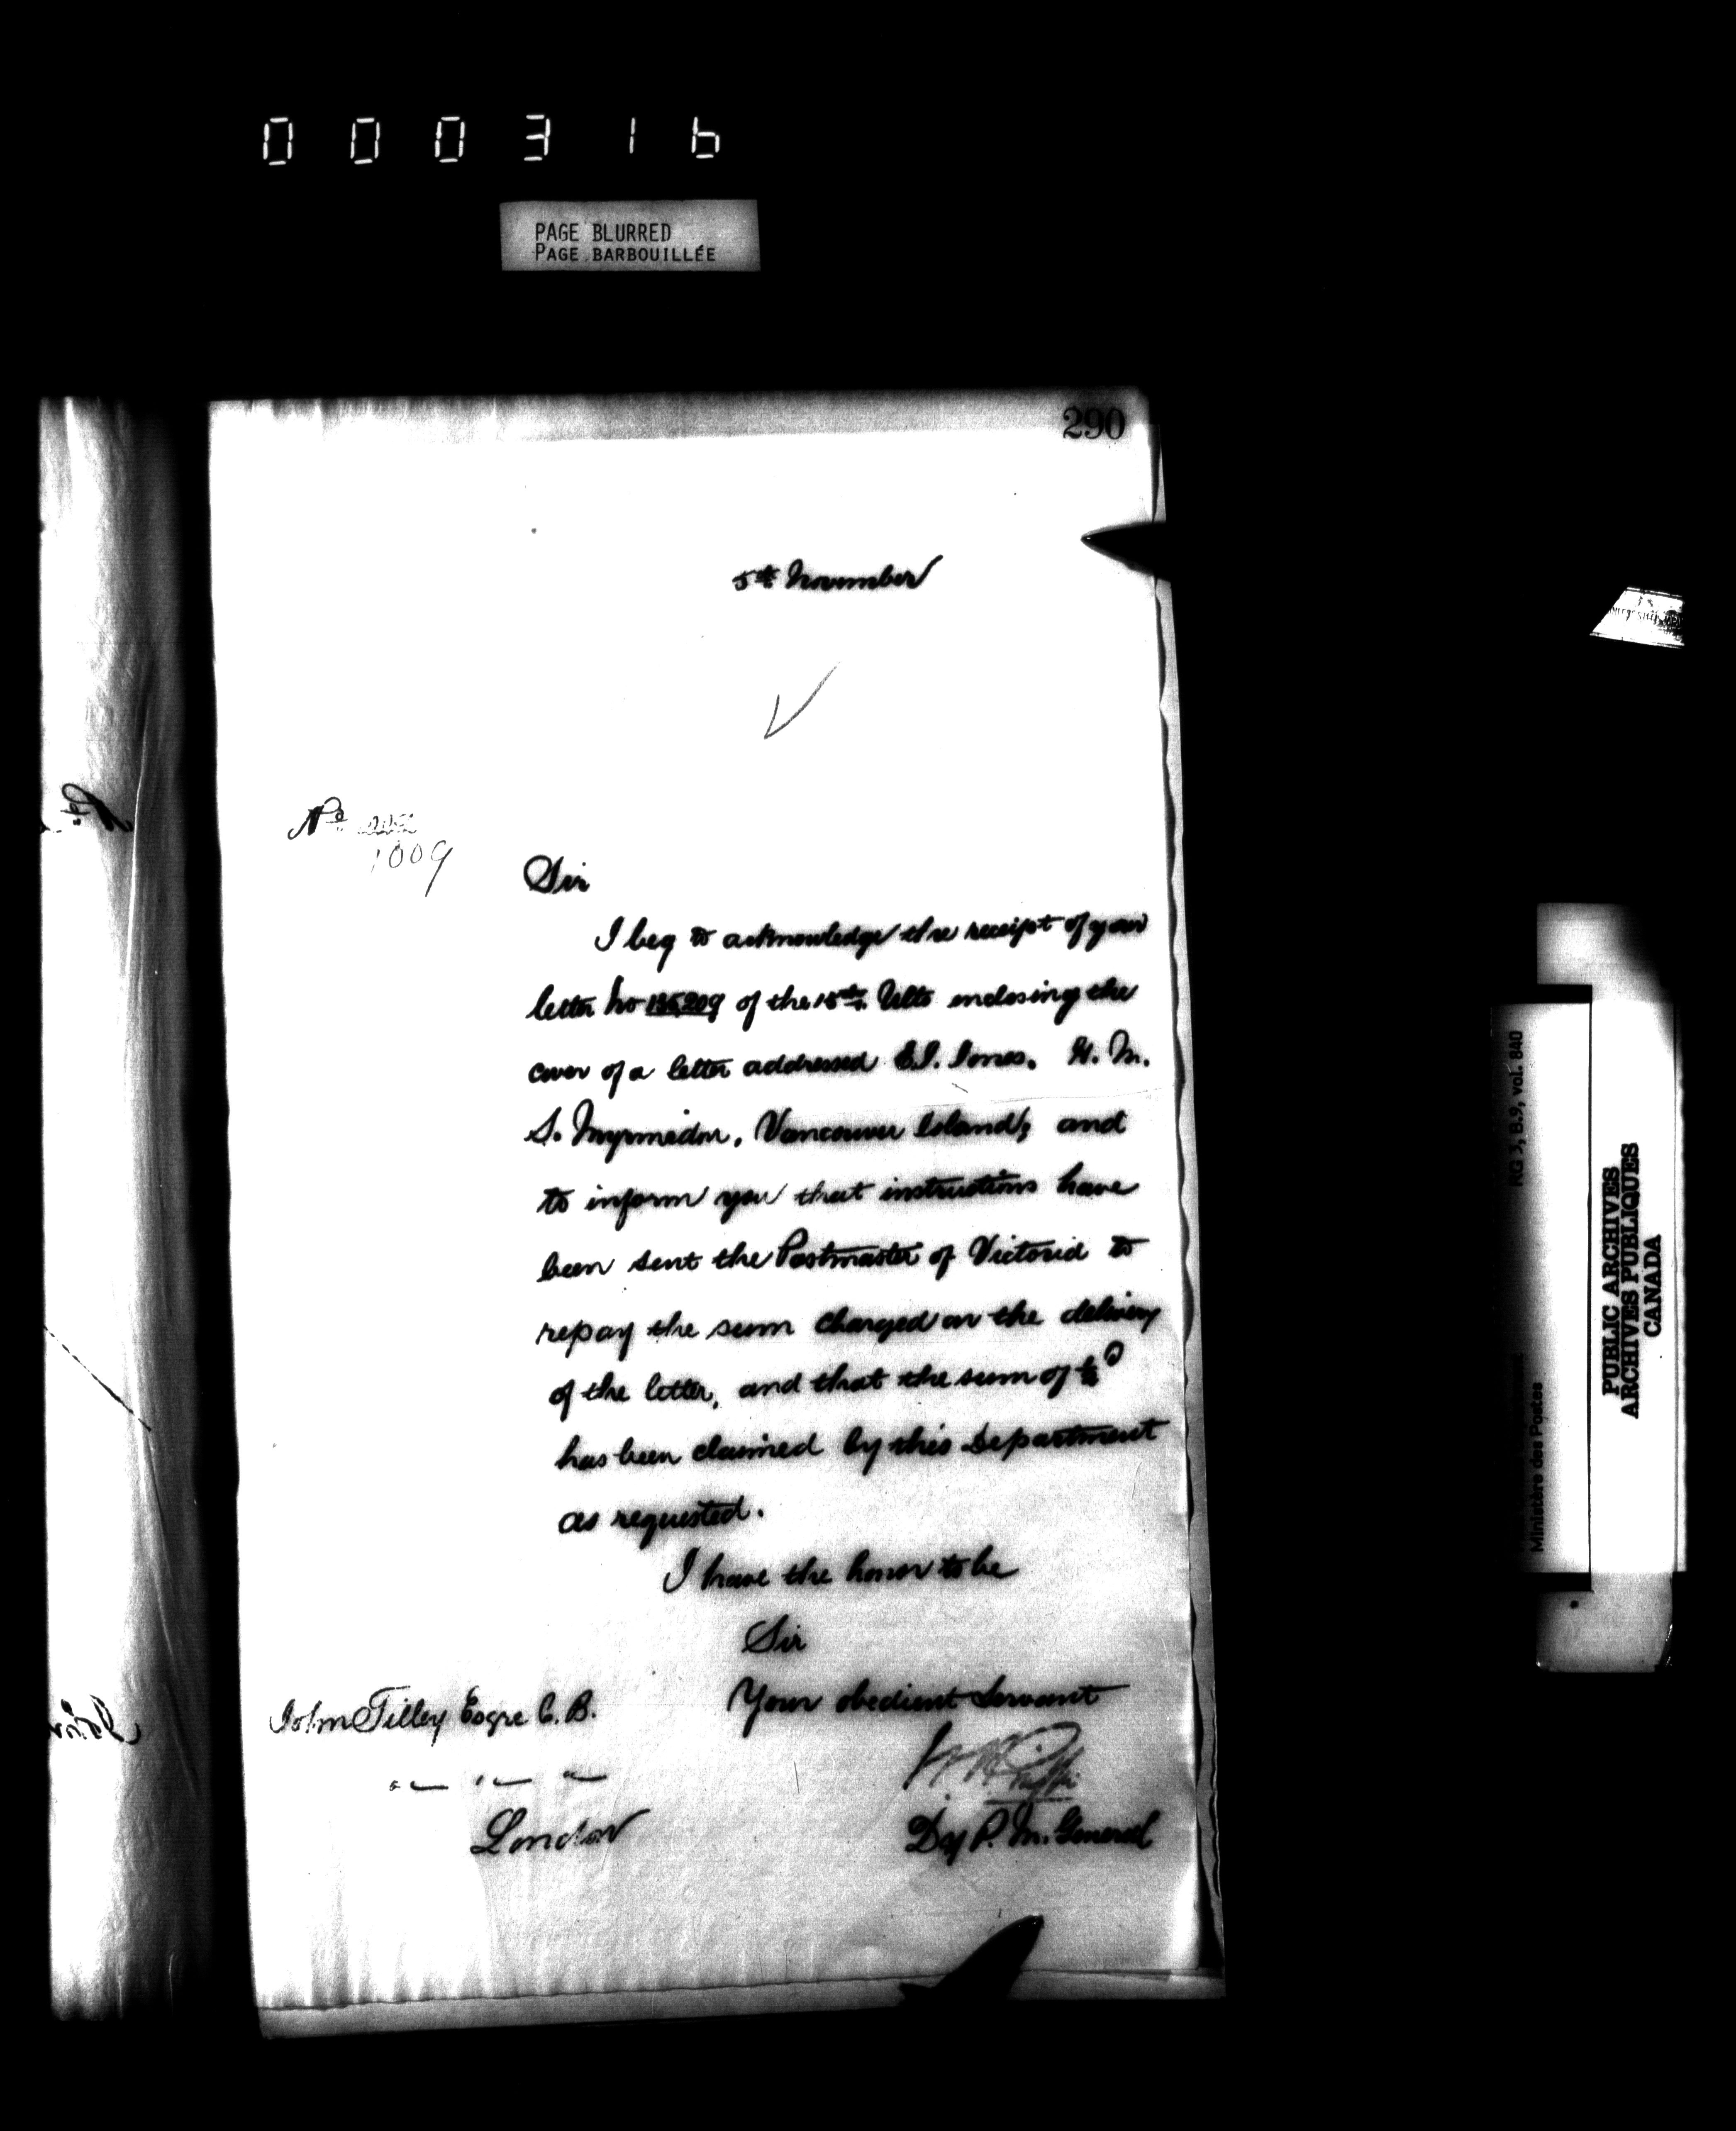 000316
PAGE BLURRED
PAGE BARBOUILLÉE
290
5th November
No
1009
Sir
I beg to acknowledge the receipt of your
letter No 135,209 of the 15th Ulto enclosing the
cover of a letter addressed E.J. Jones. H. M.
S. Myrmidon, Vancouver Island; and
to inform you that instructions have
been sent the Postmaster of Victoria to
repay the sum charged on the delivery
of the letter, and that the sum of
has been claimed by this Department
as requested.
I have the honor to be
Sir
Your obedient Servant
John Tilley Esqre C. B.
London
Dy P. M. General
RG 3, B.9, vol. 840
Ministère des Postes
PUBLIC ARCHIVES
ARCHIVES PUBLIQUES
CANADA